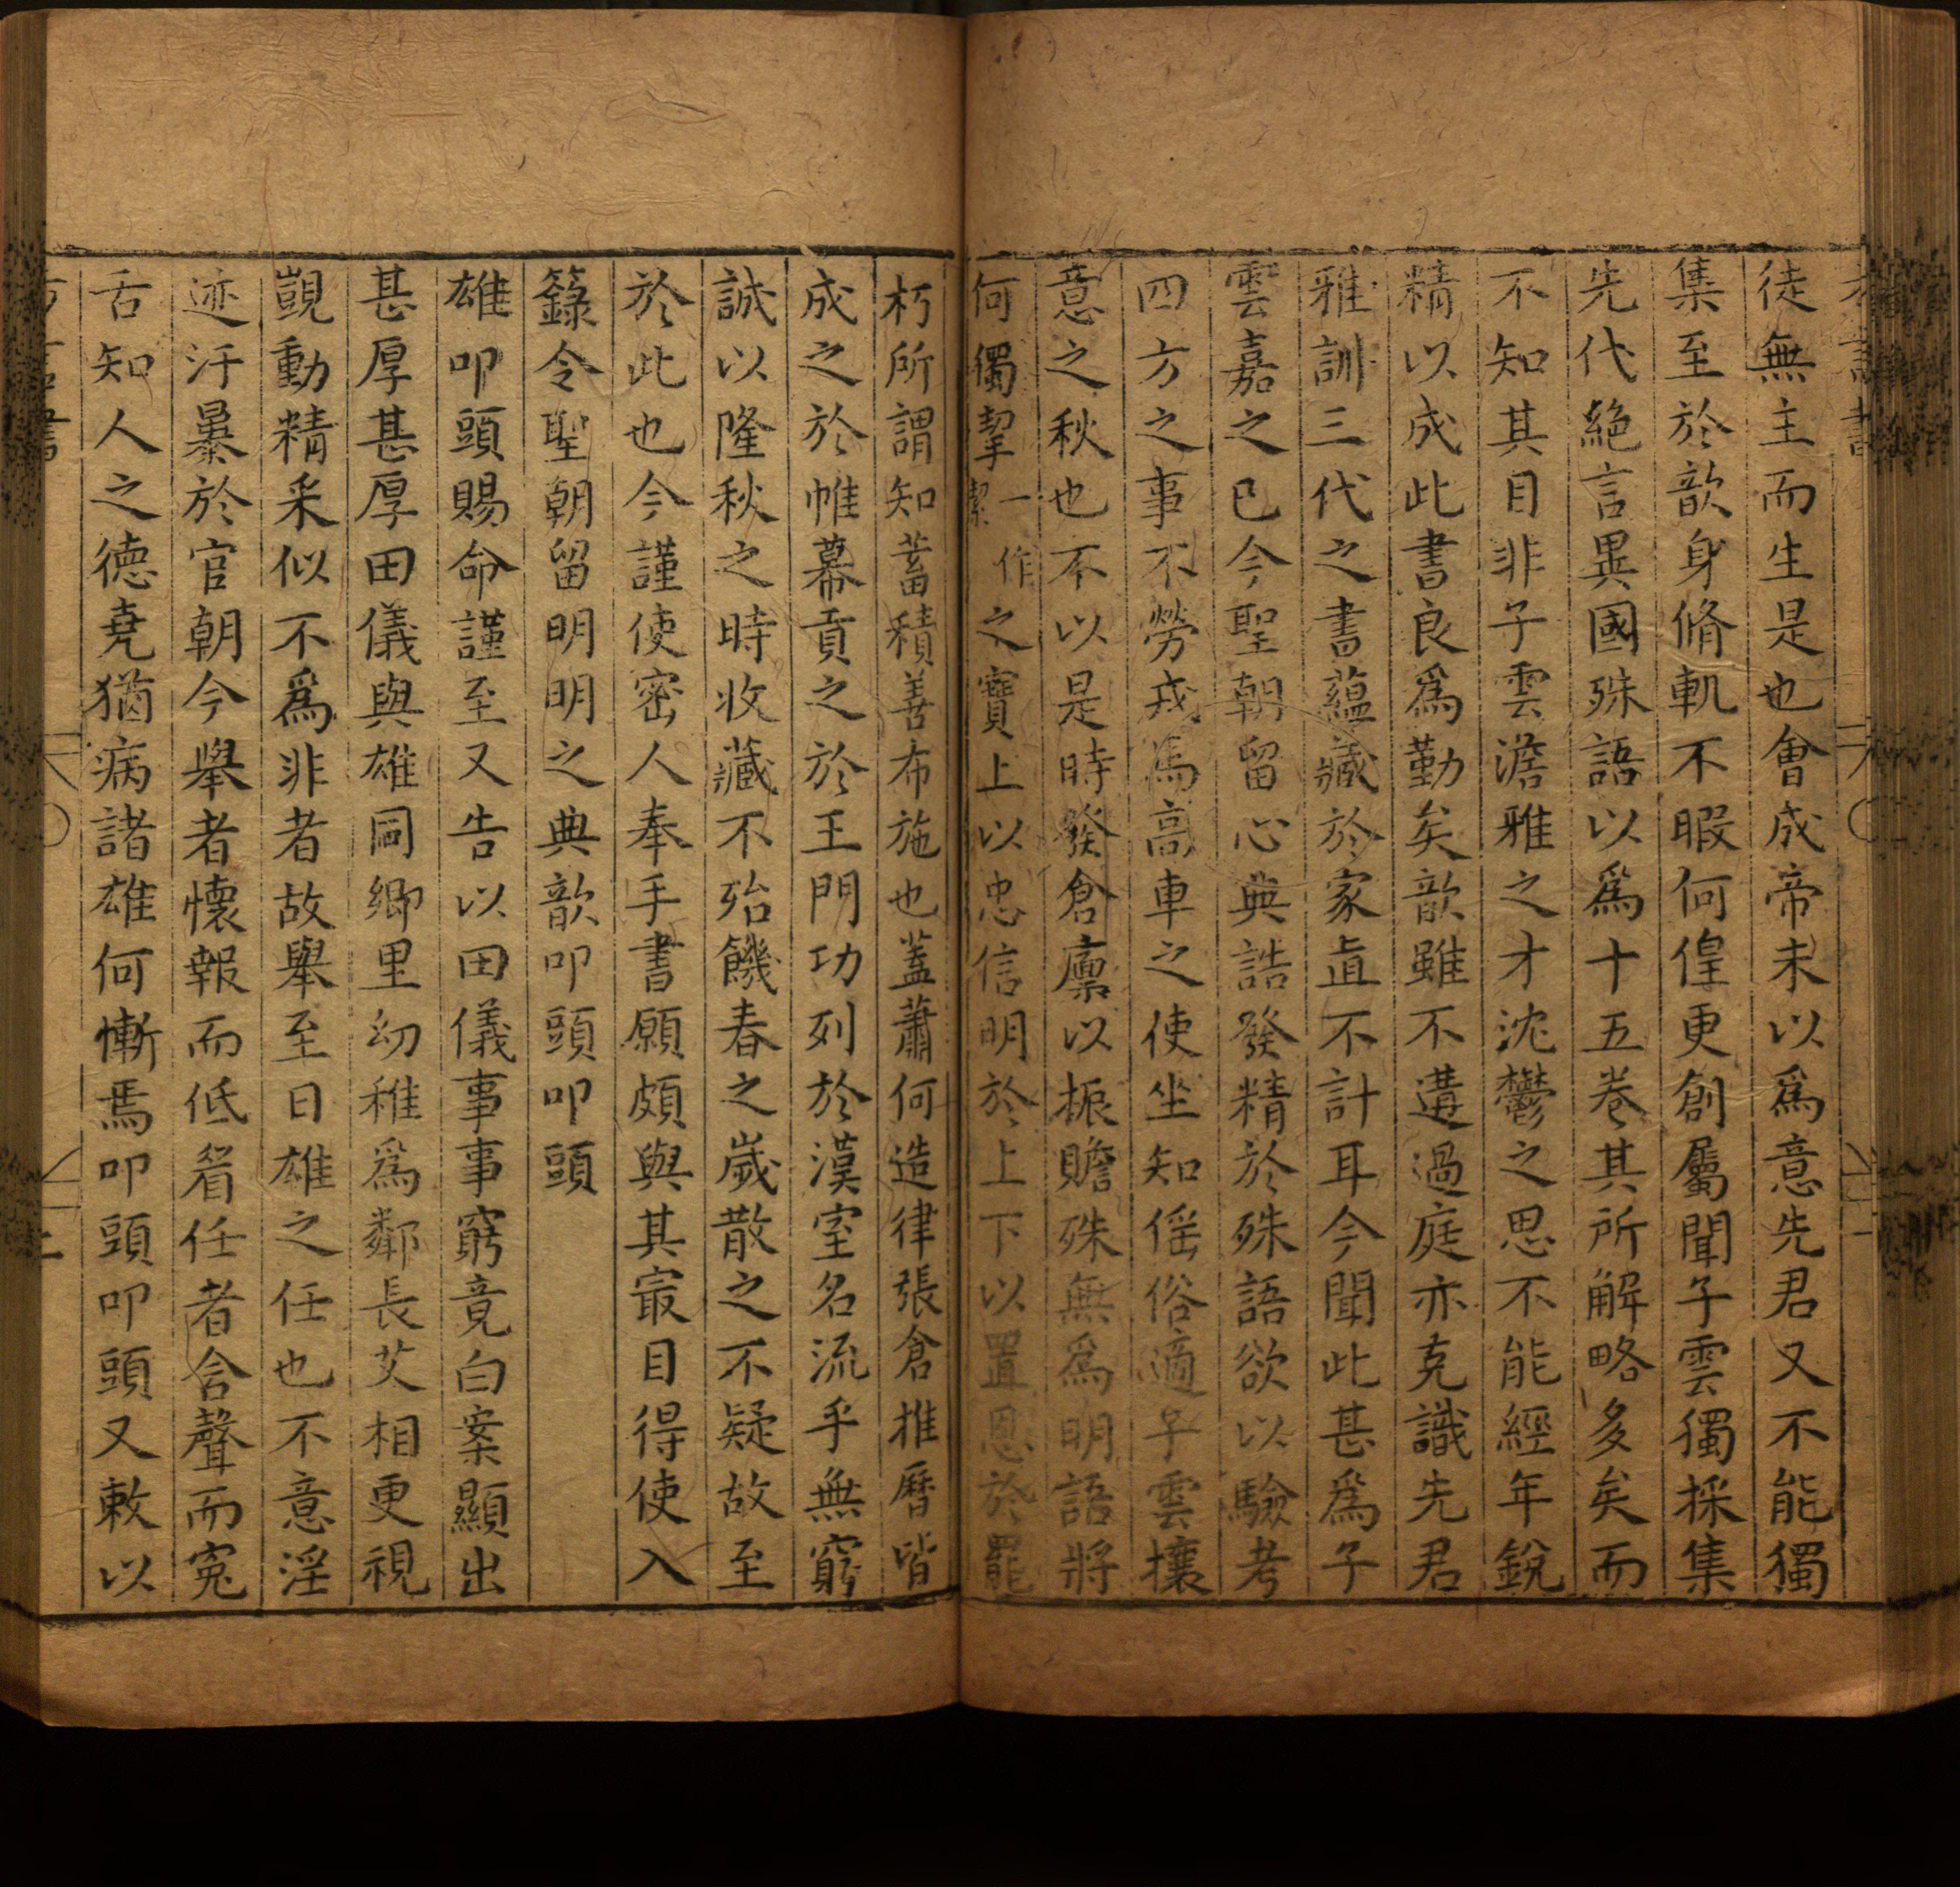 徒無主而生是也會成帝未以爲意先君又不能獨
集至於歆身脩軌不暇何偟更創屬聞子雲獨採集
先代絕言異國殊語以爲十五卷其所解略多矣而
不知其目非子雲澹雅之才沈鬱之思不能經年銳
精以成此書良爲勤矣歆雖不遘過庭亦克識先君
雅訓三代之書蘊藏於家直不計耳今聞此甚爲子
雲嘉之已今聖朝留心典誥發精於殊語欲以驗考
四方之事不勞戎馬高車之使坐知傜俗適子雲攘
意之秋也不以是時發倉廩以振贍殊無爲明語將
何獨挈一作絜之寶上以忠信明於上下以置恩於罷
朽所謂知蓄積善布施也蓋蕭何造律張倉推曆皆
成之於帷幕貢之於王門功列於漢室名流乎無窮
誠以隆秋之時收藏不殆饑春之歲散之不疑故至
於此也今謹使密人奉手書願頗與其冣目得使入
籙令聖朝留明明之典歆叩頭叩頭
雄叩頭賜命謹至又告以田儀事事窮竟白案顯出
甚厚甚厚田儀與雄同鄉里幼稚爲鄰長艾相更視
覬動精采似不爲非者故舉至日雄之任也不意淫
迹汙暴於官朝今舉者懷報而低眉任者含聲而冤
舌知人之德堯猶病諸雄何慚焉叩頭叩頭又敕以